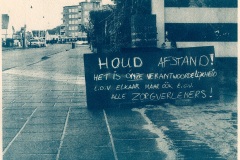 HOUD AFSTAND!
HET IS ONZE VERANTWOORDELIJKHEID
T.O.V. ELKAAR MAAR OOK T.O.V.
ALLE ZORGVERLENERS!